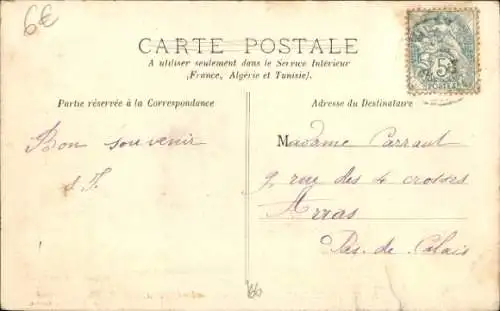 6€
CARTE POSTALE
A utiliser seulement dans le Service Intérieur
(France, Algérie et Tunisie).
Partie réservée à la Correspondance
Adresse du Destinataire
Bon souvenir
Madame Carraut
9 rue des 4 crosses
Arras
Pas-de-Calais
5